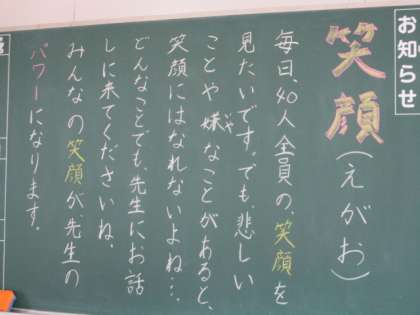 お知らせ
笑顔(えがお)
毎日、40人全員の、笑顔を
見たいです。でも、悲しい
ことや嫌なことがあると、
いや
笑顔にはなれないよね…。
どんなことでも、先生にお話
しに来てくださいね。
みんなの笑顔が、先生の
パワーになります。